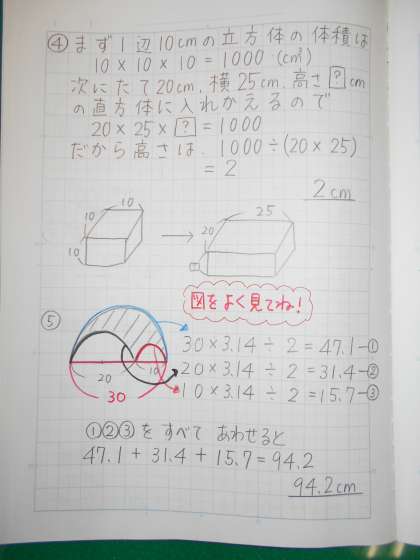 ④ まず1辺10cmの立方体の体積は
10 × 10 × 10 = 1000 (cm³)
次にたて20cm、横25cm、高さ?cm
の直方体に入れかえるので
20 × 25 × ? = 1000
だから高さは、1000÷(20 × 25)
= 2
2cm
10
10
10
25
20
?
図をよく見てね!
⑤
30 × 3.14 ÷ 2 = 47.1 ー①
20 × 3.14 ÷ 2 = 31.4 ー②
10 × 3.14 ÷ 2 = 15.7 ー③
20
10
30
①②③をすべてあわせると
47.1 + 31.4 + 15.7 = 94.2
94.2cm